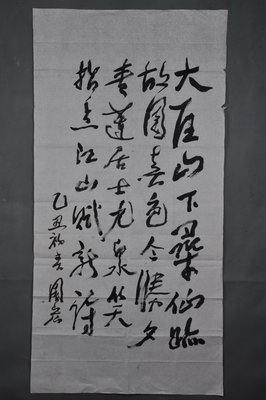 大匡山下群仙临
故園春色今勝夕
青蓮居士九泉笑
指点江山赋新詩
乙丑初春